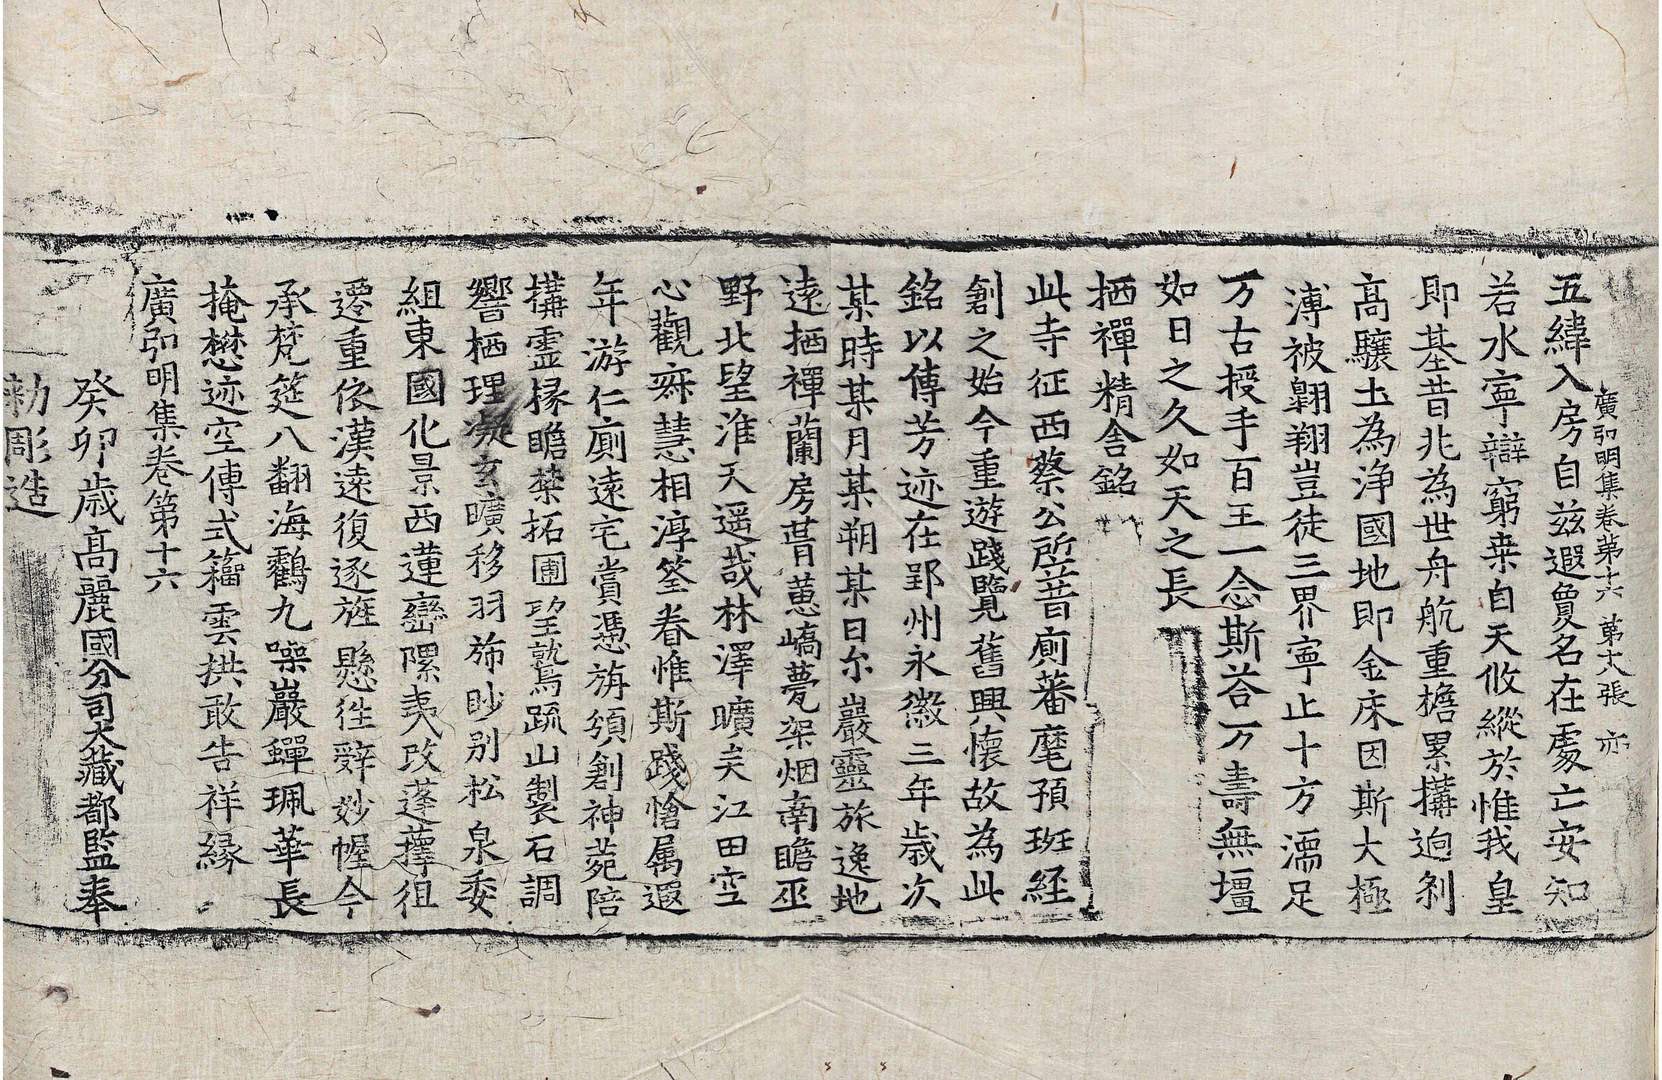 廣弘明集卷第十六 第十八張 亦
五緯入房自玆遐敻名在處亡安知
若水寧辯窮桒自天攸縱於惟我皇
即基昔兆為世舟航重檐累搆逈剎
高驤土為浄國地即金床因斯大極
溥被翺翔豈徒三界寧止十方濡足
万古授手百王一念斯荅万壽無壃
如日之久如天之長
栖禪精舍銘
此寺征西蔡公所昔廁蕃麾預班經
創之始今重遊踐覽舊興懷故為此
銘以傳芳迹在郢州永徽三年歲次
某時某月某朔某日尒巖靈旅逸地
遠栖禪蘭房葺蕙嶠甍架烟南瞻巫
野北望淮天遥哉林澤曠矣江田空
心觀寐慧相淳筌眷惟斯踐愴属遐
年游仁廁遠宅賞憑旃頒創神苑陪
搆靈椽瞻禁拓圃望鷲疏山製石調
響栖理凝玄曠移羽旆眇别松泉委
組東國化景西蓮巒隰夷改蓬蘀徂
遷重依漢遠復逐旌懸徃辭妙幄今
承梵筵八翻海鸛九噪巖蟬珮華長
掩懋迹空傳式籀雲拱敢告祥緣
廣弘明集卷第十六
癸卯歲高麗國分司大藏都監奉
勑彫造